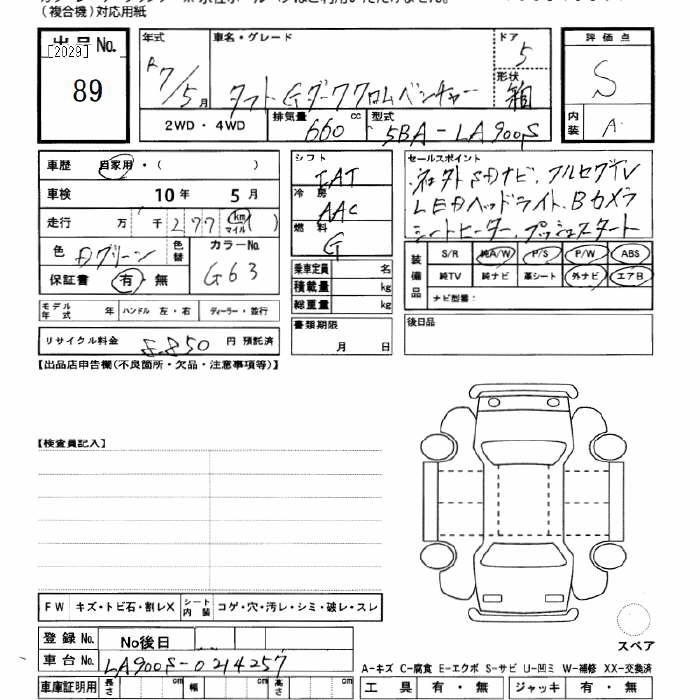 (複合機)対応用紙
出品No.
[2029]
89
年式
R7/5月
車名・グレード
タフト Gダーククロムベンチャー
ドア
5
形状
箱
評価点
S
内装
A
2WD・4WD
排気量
660 cc
型式
5BA-LA900S
車歴 自家用・( )
車検 10年 5月
走行 万 千 277 km マイル ( )
色 Dグリーン
色替
カラーNo.
G63
保証書 有・無
モデル年式 年 ハンドル 左・右 ディーラー・並行
リサイクル料金 8,850 円 預託済
シフト
IAT
冷房
AAC
燃料
G
乗車定員 名
積載量 kg
総重量 kg
書類期限
月 日
セールスポイント
ネクタト SDナビ、フルセグTV
LEDヘッドライト、Bカメラ
シートヒーター、プッシュスタート
装備品
S/R 純A/W P/S P/W ABS
純TV 純ナビ 革シート 外ナビ エアB
ナビ型番:
後日品
【出品店申告欄(不良箇所・欠品・注意事項等)】
【検査員記入】
FW キズ・トビ石・割レX シート内装 コゲ・穴・汚レ・シミ・破レ・スレ
登録No. No後日
車台No. LA900S-0214257
車庫証明用 長さ cm 幅 cm 高さ cm
スペア
A-キズ C-腐食 E-エクボ S-サビ U-凹ミ W-補修 XX-交換済
工具 有・無 ジャッキ 有・無